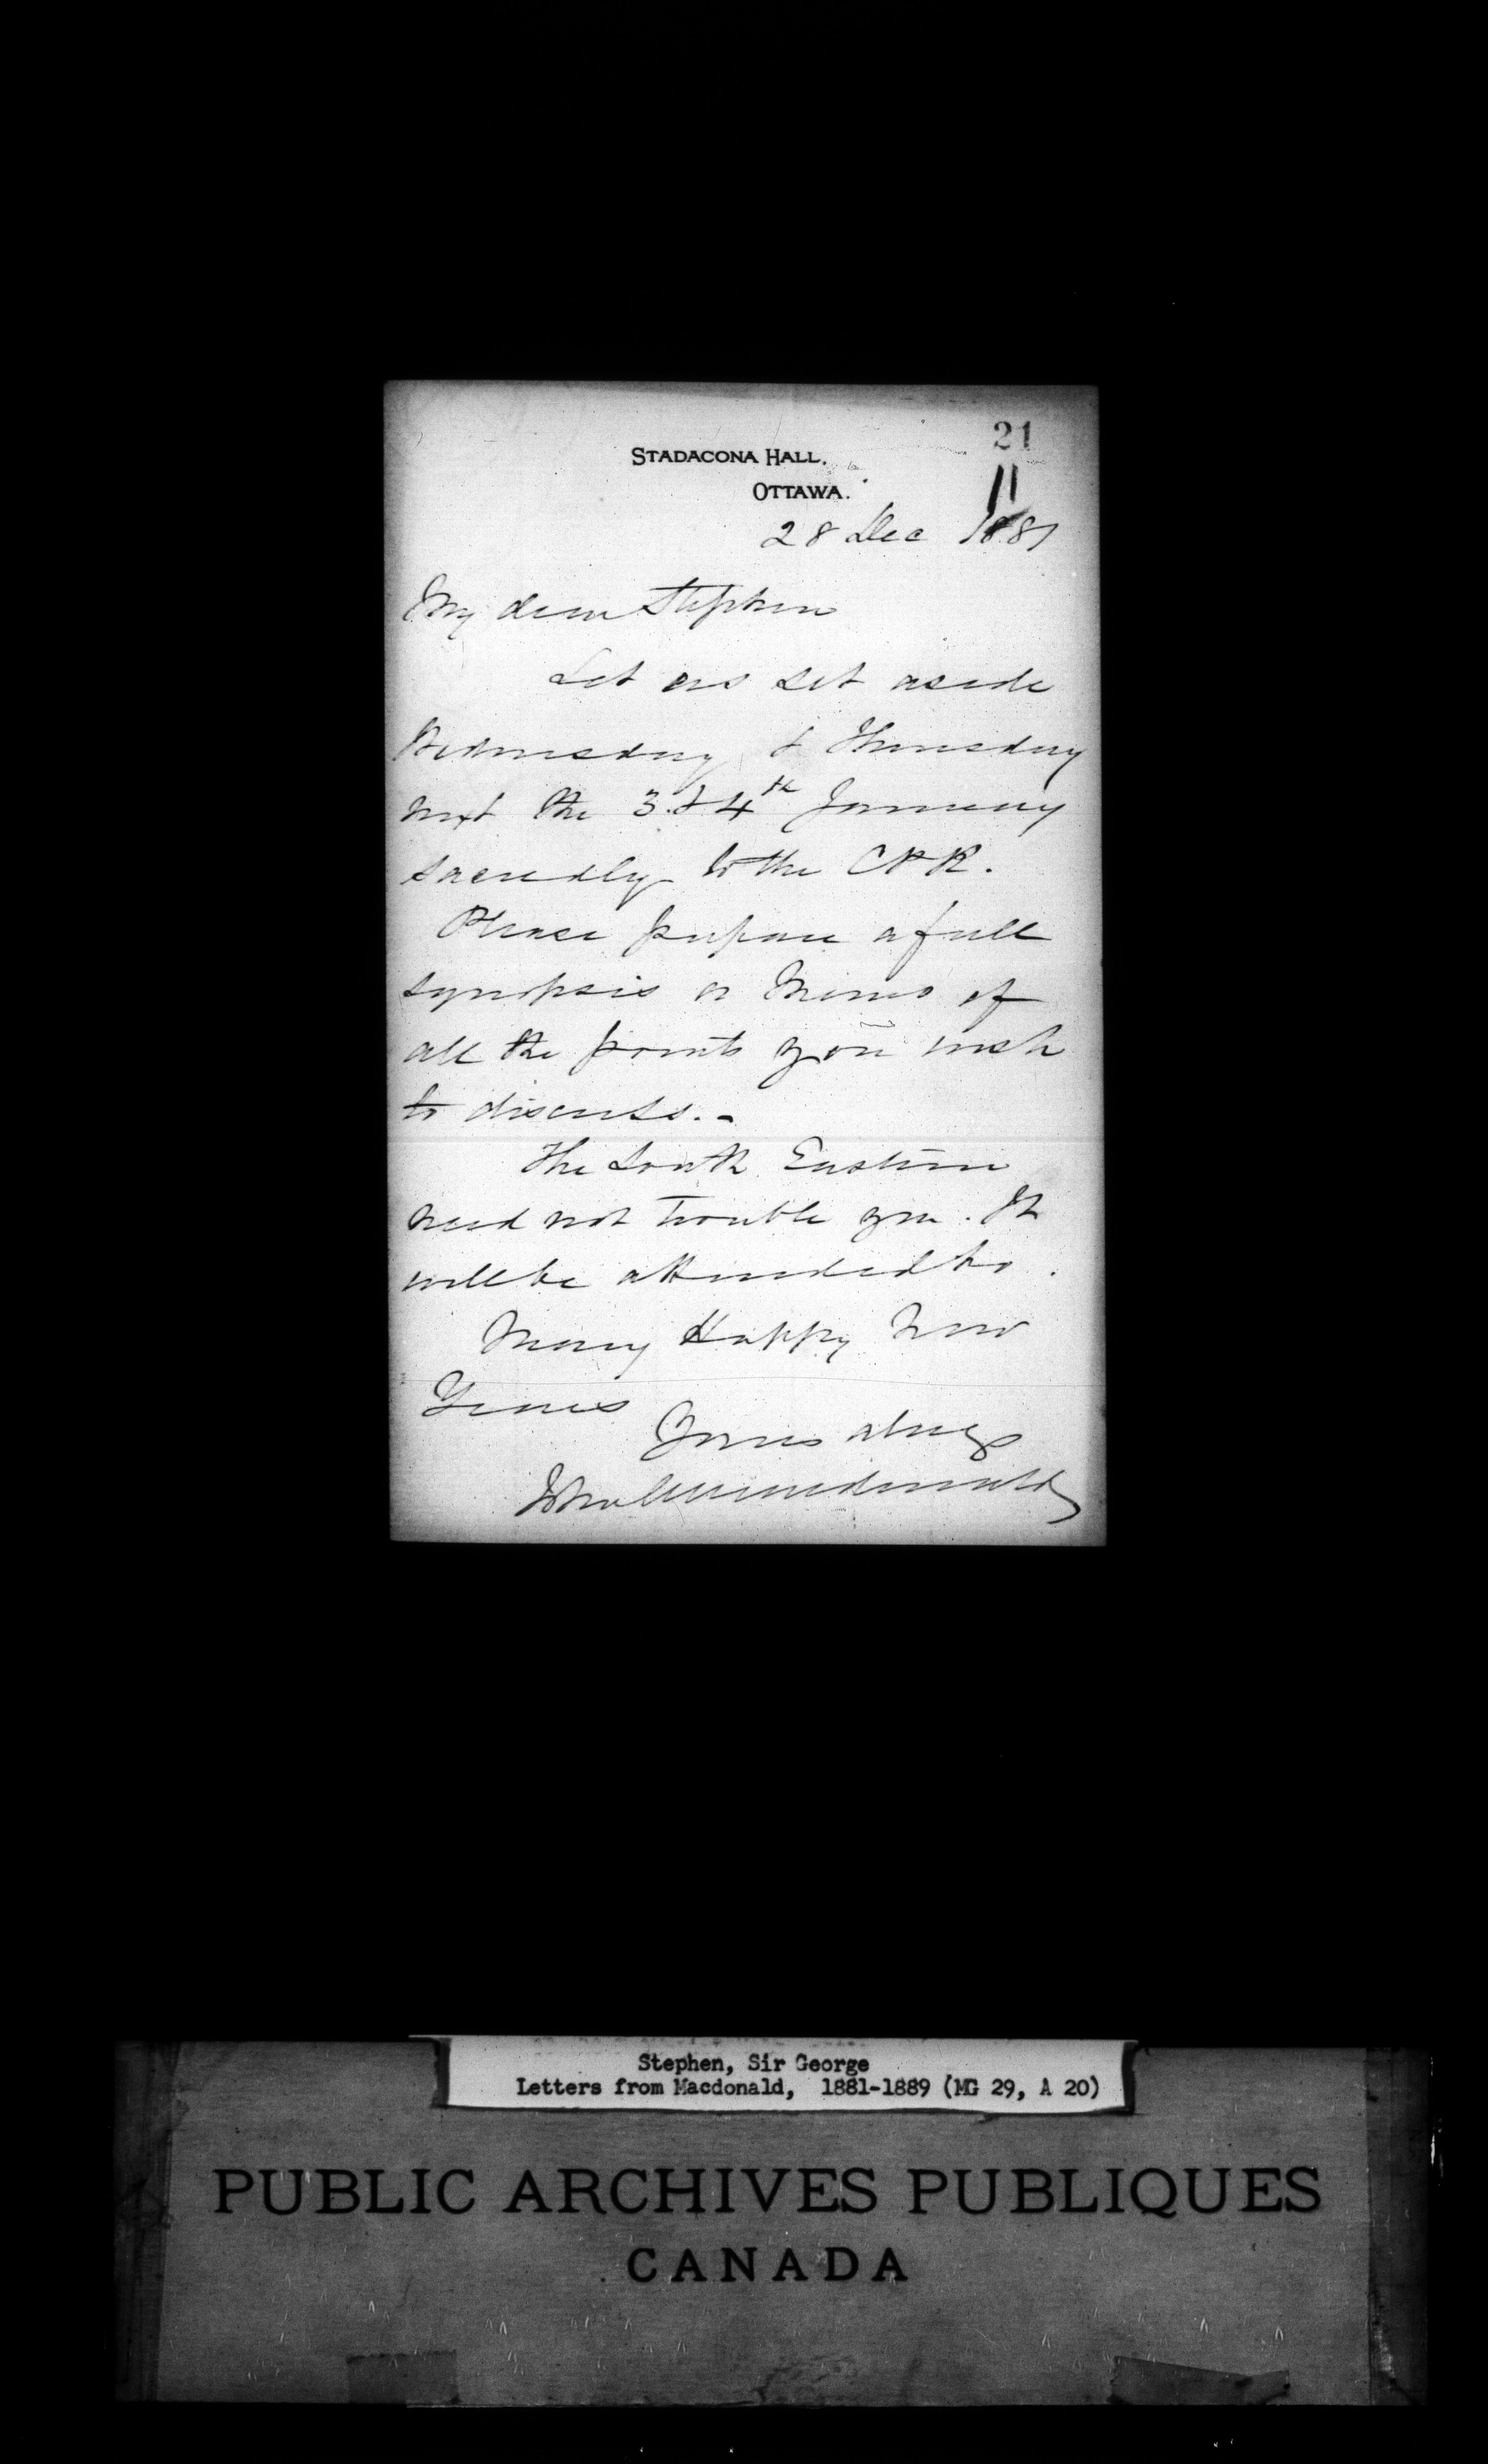 21
STADACONA HALL.
OTTAWA.
11
28 Dec 1881
My dear Stephen
Let us set aside
Wednesday & Thursday
next the 3. & 4th January
sacredly to the CPR.
Please prepare a full
synopsis or Memo of
all the points you wish
to discuss. -
The South Eastern
need not trouble you. It
will be attended to.
Many Happy New
Years
Yours always
John A Macdonald
Stephen, Sir George
Letters from Macdonald, 1881-1889 (MG 29, A 20)
PUBLIC ARCHIVES PUBLIQUES
CANADA